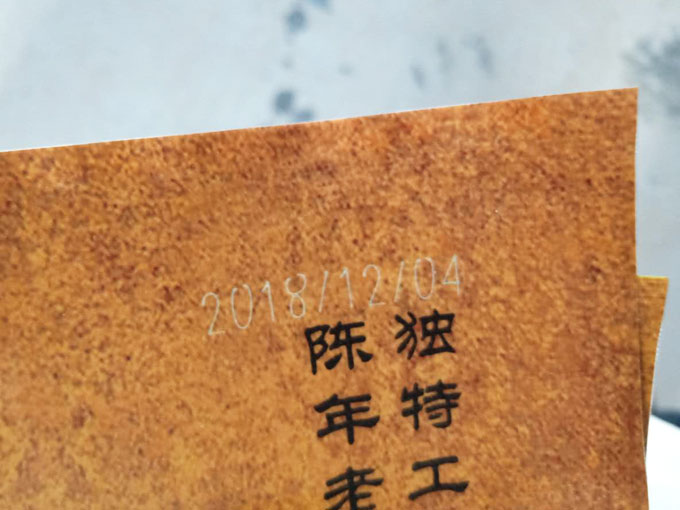 2018/12/04
独特工
陈年老